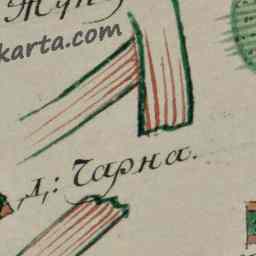 karta.com
Д: Чарна.